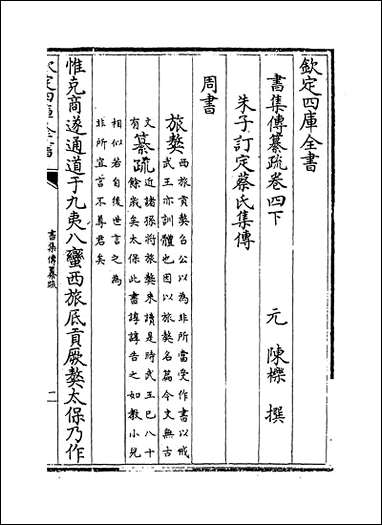 欽定四庫全書
書集傳纂疏卷四下
元 陳櫟 撰
朱子訂定蔡氏集傳
周書
旅獒
西旅貢獒召公以為非所當受作書以戒
武王亦訓體也因以旅獒名篇今文無古
文有
纂疏
近諸孫將旅獒來讀是時武王已八十
餘歲矣太保此書諄諄告之如教小兒
相似若自後世言之為
非所宜言不尊君矣
惟克商遂通道于九夷八蠻西旅厎貢厥獒太保乃作
欽定四庫全書
書集傳纂疏
一